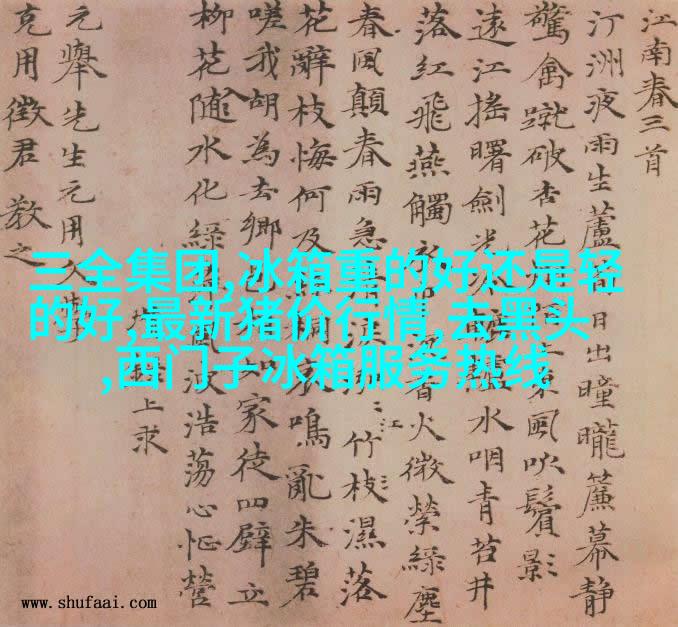 江南春三首
汀洲夜雨生蘆日出曈曨簾幕静
驚禽蹴破杏花東風吹鬢影
遠江搖曙劍水咽青苔井
落紅飛燕觸火微縈緑塵
春風顛春雨急江竹枝濕落
花辭枝悔何及鳴亂朱碧
嗟我胡為去鄉如家徒四壁立
柳花隨水化緑風波浩蕩心怔營
上求
元舉先生元用
克用徵君 教之
三全集团,冰箱重的好还是轻
的好,最新猪价行情,去黑头
,西门子冰箱服务热线
www.shufaai.com